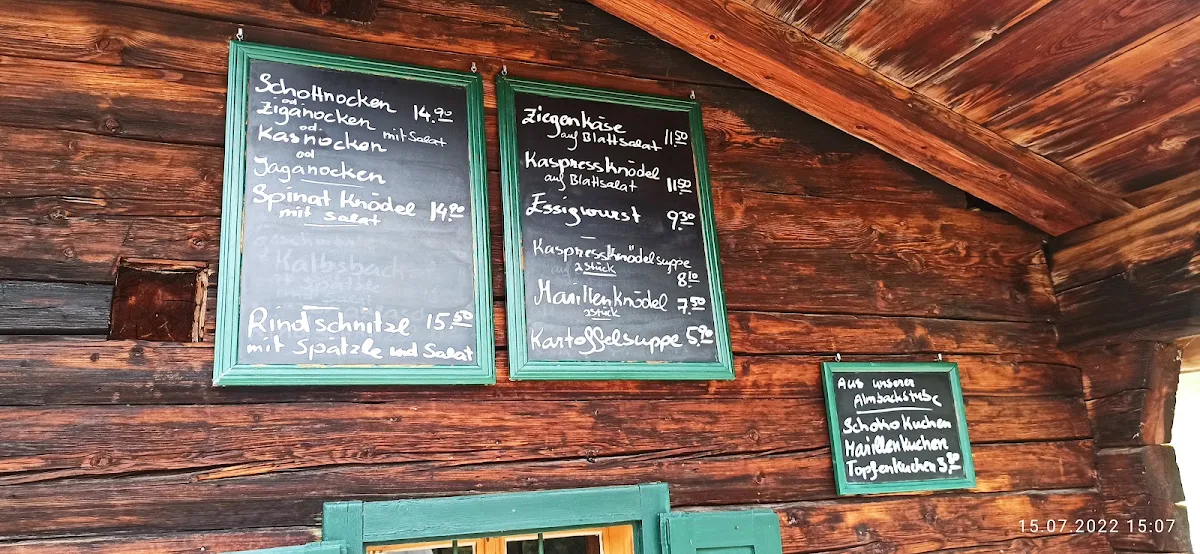 Schottnocken 14.90
od
Ziganocken
od. mit Salat
Kasnocken
od
Jaganocken
Spinat Knödel 14.90
mit Salat
Rindschnitzl 15.50
mit Spätzle und Salat
Ziegenkäse
auf Blattsalat 11.50
Kaspressknödel
auf Blattsalat 11.50
Essigwurst 9.30
Kaspressknödelsuppe
2 Stück 8.10
Marillenknödel 7.50
2 Stück
Kartoffelsuppe 5.90
Aus unserer
Almbackstube
Schoko Kuchen
Marillenkuchen
Topfenkuchen
15.07.2022 15:07